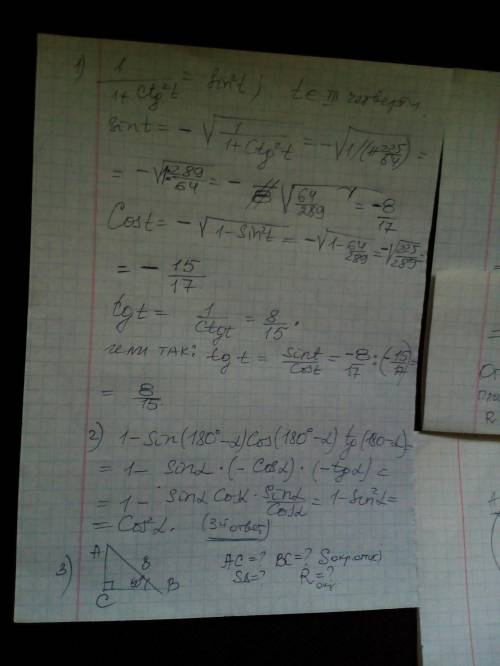 1) 1/(1+Ctg²t) = Sin²t; t ∈ III четверти
Sint = -√(1/(1+Ctg²t)) = -√(1/(1+225/64)) =
= -√(1:289/64) = -√(64/289) = -8/17
Cost = -√(1-Sin²t) = -√(1-64/289) = -√(225/289) =
= -15/17
tgt = 1/Ctgt = 8/15.
или так: tgt = Sint/Cost = -8/17:(-15/17)=
= 8/15
2) 1-Sin(180°-α)Cos(180°-α)tg(180-α)=
= 1- Sinα·(-Cosα)·(-tgα) =
= 1- Sinα Cosα·Sinα/Cosα = 1-Sin²α=
= Cos²α. (3й ответ)
3) A 8 AC=? BC=? Sокр.опис)
C B S∆=? R=?
От
R